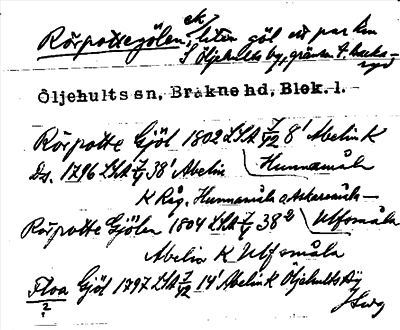 Rörpottegölen, ek, liten göl ett par km
S Öljehults by, gränsen t. Backa-
ryd
Öljehults sn, Bräkne hd, Blek. l.
Rörpotte Gjöl 1802 LSA 7/42 8' Abelin K
Ds. 1796 LSA 7/4 38' Abelin Hunnamåla
K Råg. Hunnamåla o Askaremåla —
Rörpotte Gjölen 1804 LSA 7/4 38² Ulfsmåla
Abelin K Ulfsmåla
Floa Gjöl 1797 LSA 7/42 14' Abelin K Öljehults by
?